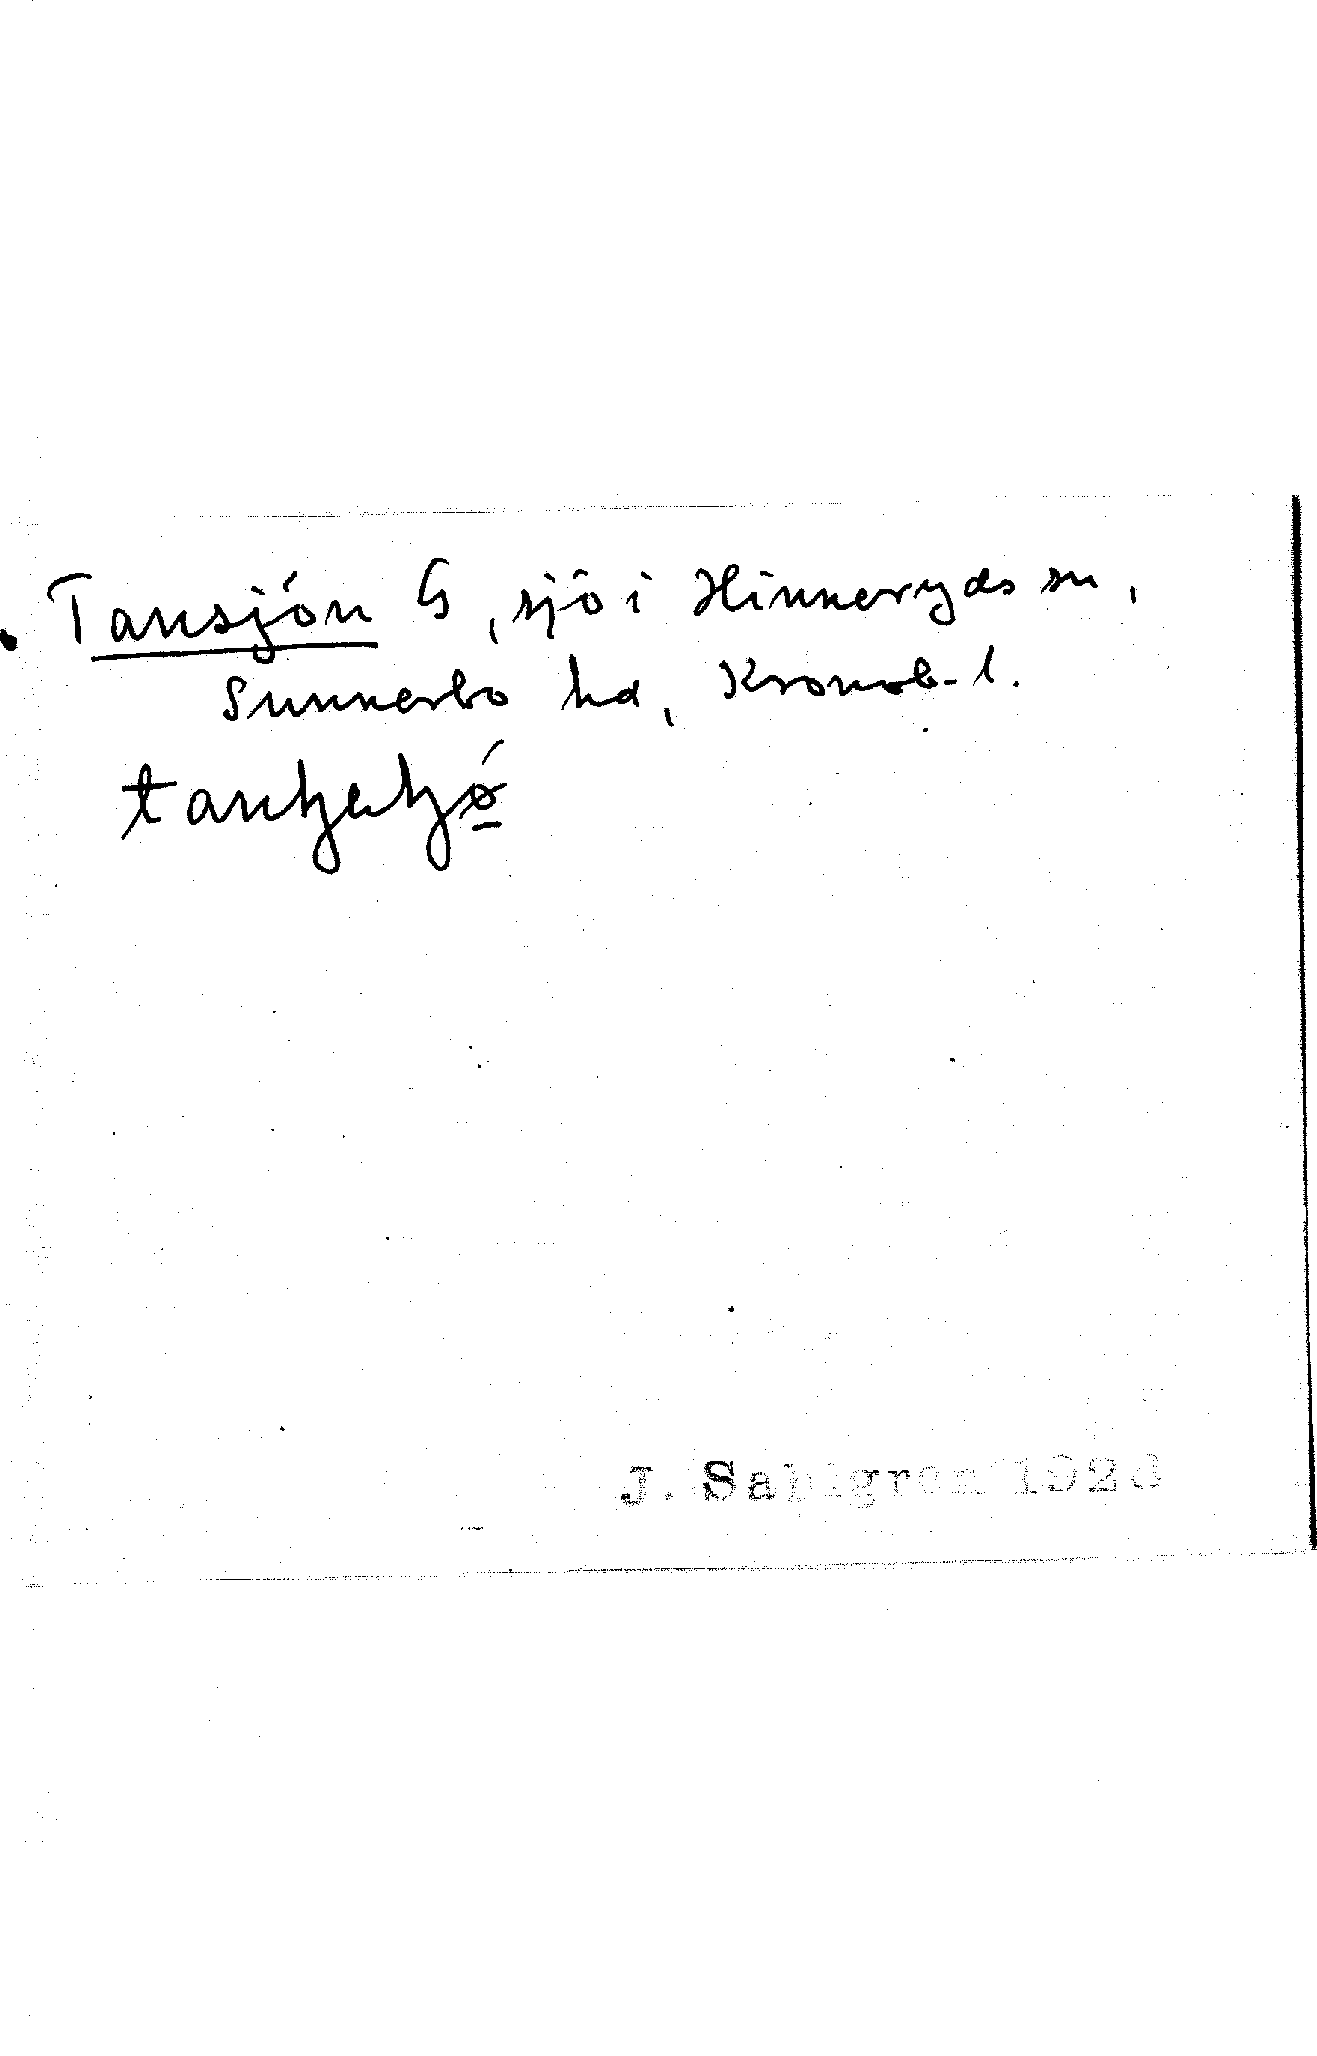 Tansjön G, sjö i Hinneryds sn,
Sunnerbo hd, Kronob. l.
J. Sahlgren 192